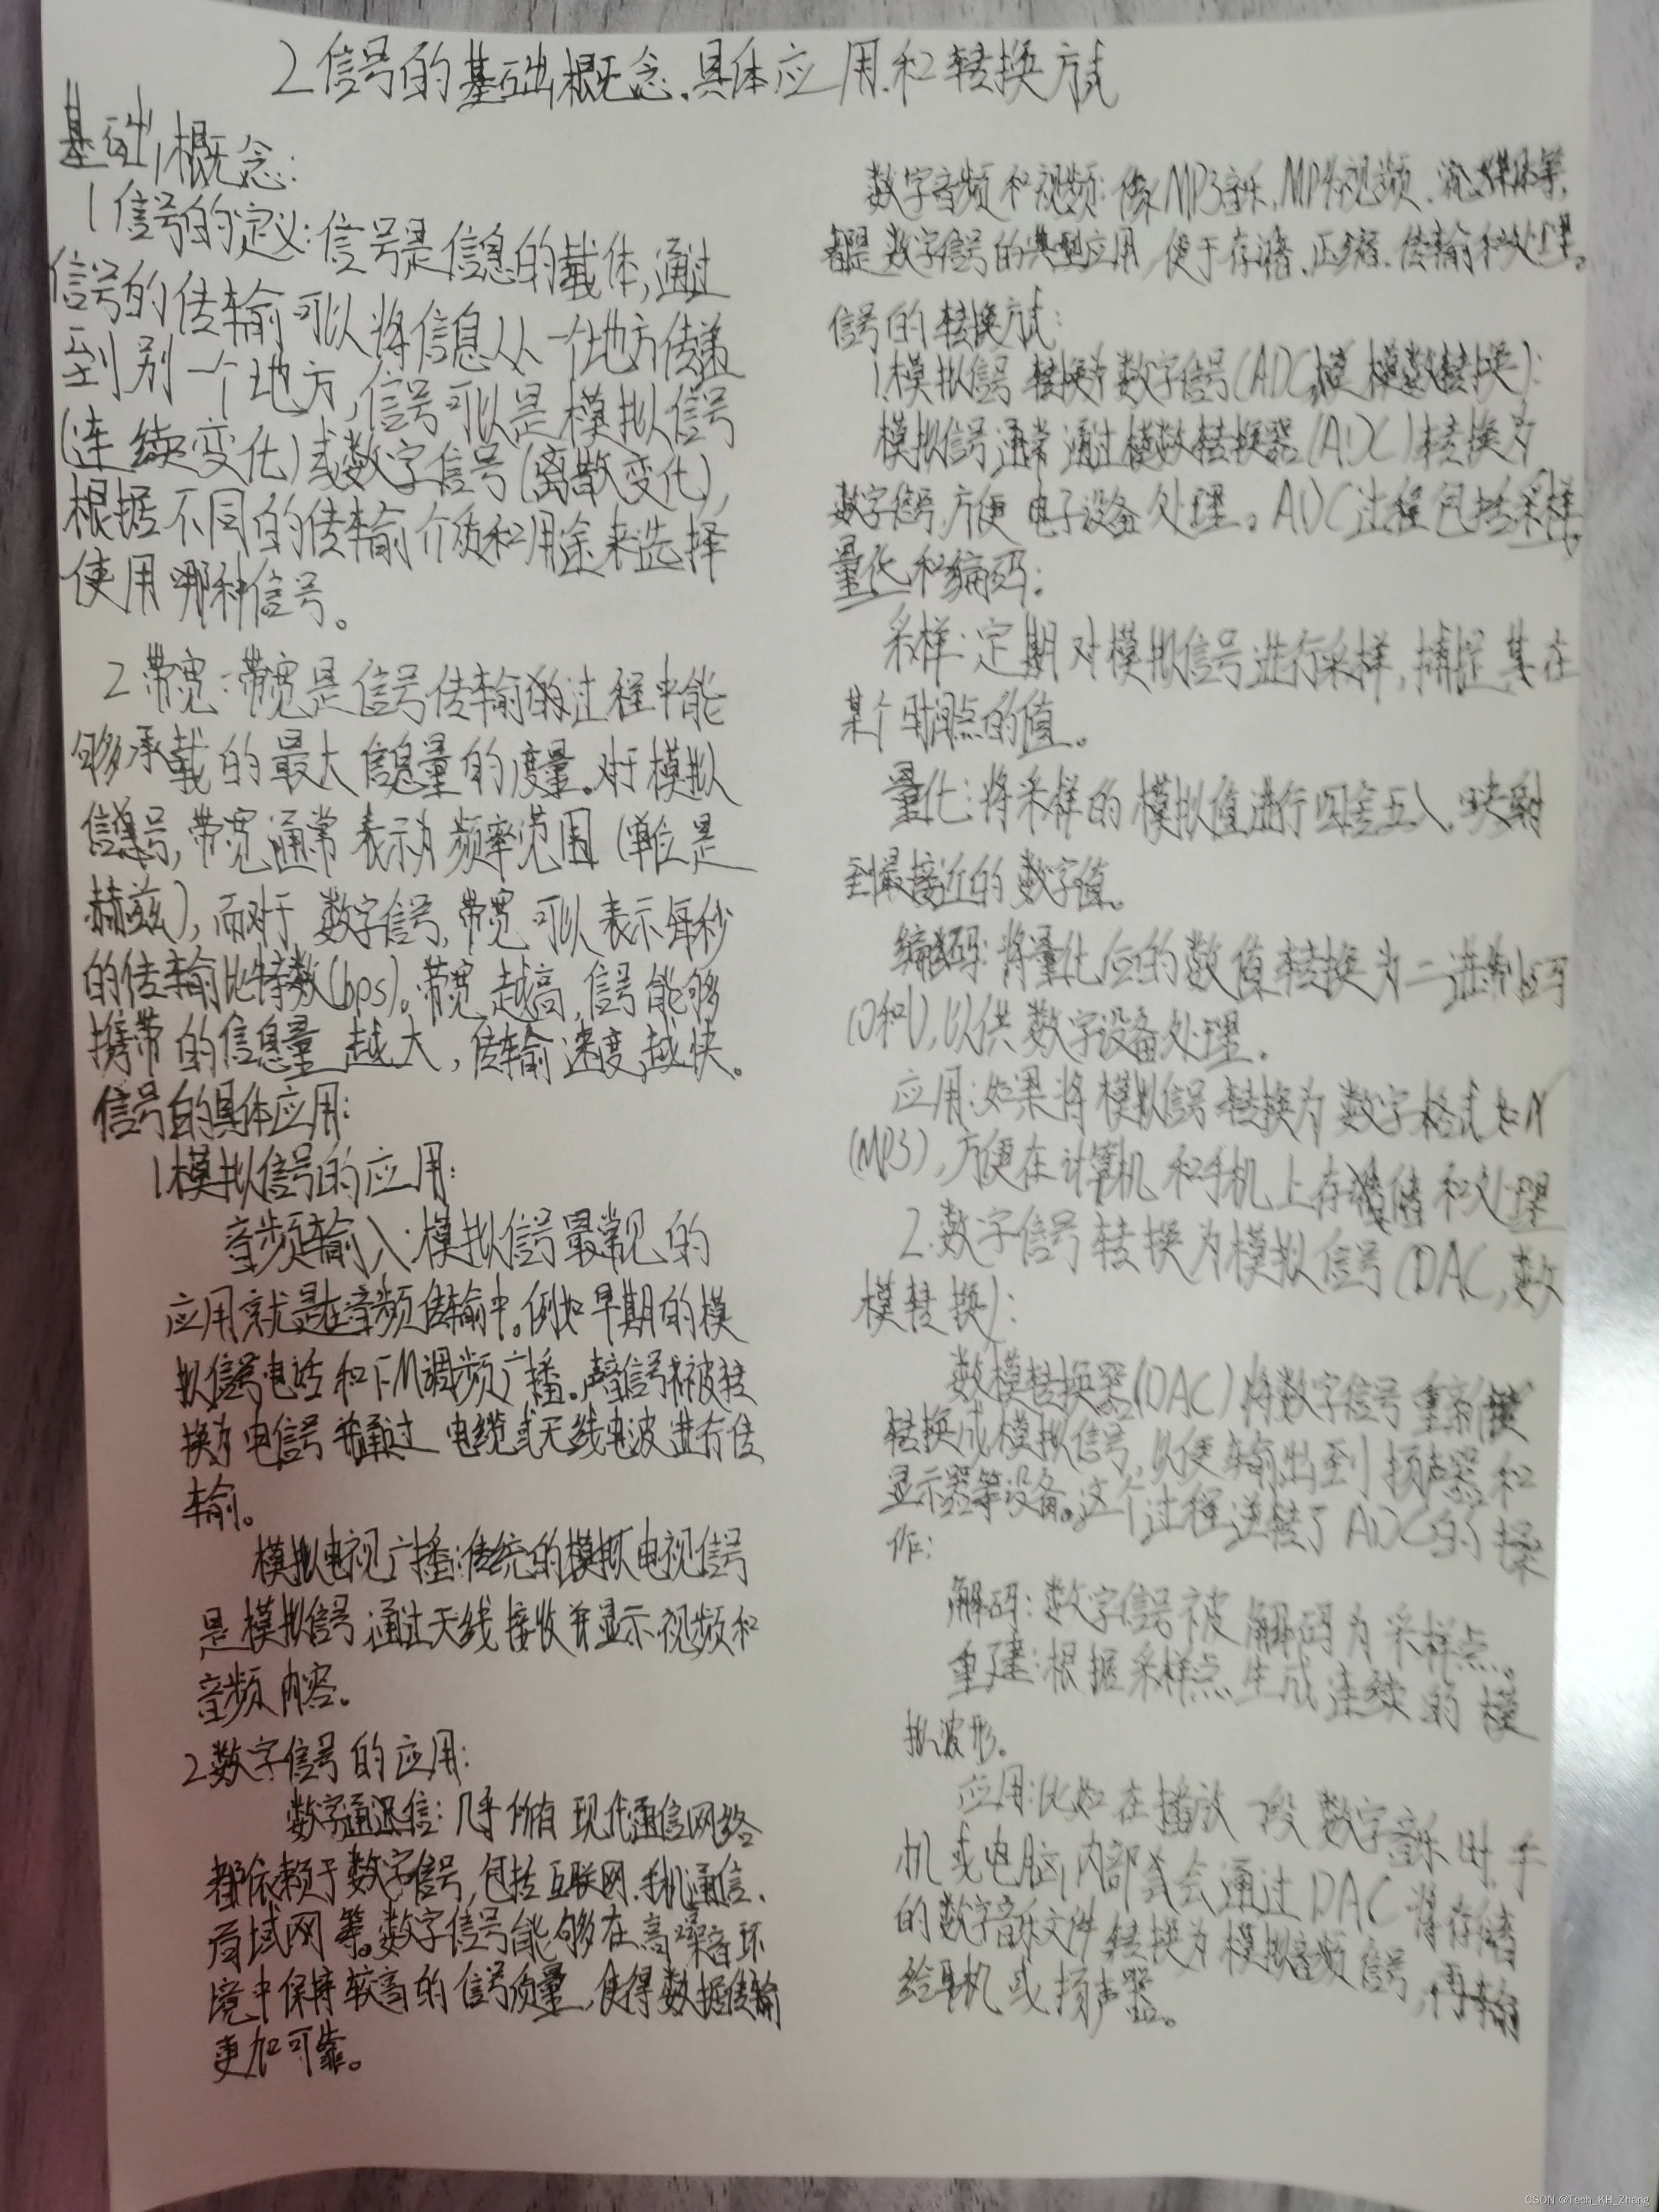 2 信号的基础概念、具体应用和转换方式
基础概念:
1 信号的定义:信号是信息的载体,通过
信号的传输可以将信息从一个地方传递
到别一个地方,信号可以是模拟信号
(连续变化)或数字信号(离散变化),
根据不同的传输介质和用途来选择
使用哪种信号。
2 带宽:带宽是信号传输的过程中能
够承载的最大信息量的度量。对于模拟
信号,带宽通常表示为频率范围(单位是
赫兹),而对于数字信号,带宽可以表示每秒
的传输比特数(bps)。带宽越高,信号能够
携带的信息量越大,传输速度越快。
信号的具体应用:
1 模拟信号的应用:
音频输入:模拟信号最常见的
应用就是在音频传输中。例如早期的模
拟信号电话和FM调频广播。声音信号被转
换为电信号并通过电缆或无线电波进行传
输。
模拟电视广播:传统的模拟电视信号
是模拟信号,通过天线接收并显示视频和
音频内容。
2 数字信号的应用:
数字通信:几乎所有现代通信网络
都依赖于数字信号,包括互联网、手机通信、
局域网等。数字信号能够在高噪音环
境中保持较高的信号质量,使得数据传输
更加可靠。
数字音频和视频:像MP3音乐,MP4视频、流媒体等,
都是数字信号的典型应用,便于存储、压缩、传输和处理。
信号的转换方式:
1.模拟信号转换为数字信号(ADC,模数转换):
模拟信号通常通过模数转换器(ADC)转换为
数字信号,方便电子设备处理。ADC过程包括采样、
量化和编码:
采样:定期对模拟信号进行采样,捕捉其在
某个时间点的值。
量化:将采样的模拟值进行四舍五入,映射
到最接近的数字值。
编码:将量化后的数值转换为二进制码
(0和1),以供数字设备处理。
应用:如果将模拟信号转换为数字格式如
(MP3),方便在计算机和手机上存储和处理
2.数字信号转换为模拟信号(DAC,数
模转换):
数模转换器(DAC)将数字信号重新
转换成模拟信号,以便输出到扬声器和
显示器等设备。这个过程逆转了ADC的操
作:
解码:数字信号被解码为采样点。
重建:根据采样点生成连续的模
拟波形。
应用:比如在播放一段数字音乐时,手
机或电脑内部会通过DAC将存储
的数字音乐文件转换为模拟音频信号,再输
给耳机或扬声器。
CSDN @Tech_KH_Zhang